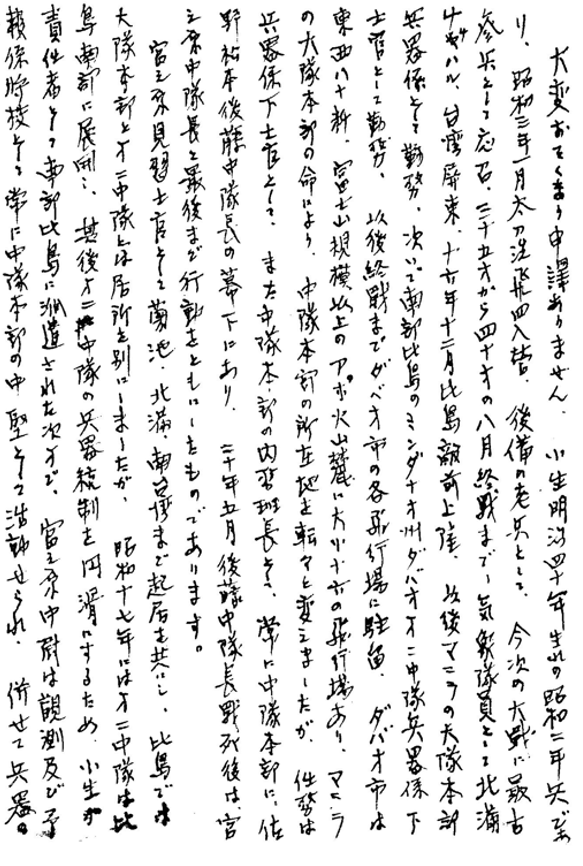 大変おそくなり申訳ありません。 小生明治四十年生れの昭和二年兵であ
り、昭和三年一月太刀洗飛四入営、後備の老兵として、今次の大戦に最古
参兵として応召、三十五才から四十才の八月終戦まで、気象隊員として北満
チチハル、台湾屏東、十六年十二月比島敵前上陸、以後マニラの大隊本部
兵器係として勤務、次いで南部比島のミンダナオ州ダバオオ二中隊兵器係下
士官として勤務、以後終戦までダバオ市の各飛行場に駐留、ダバオ市は
東西八十粁、富士山規模以上のアポ火山麓に大小十六の飛行場あり、マニラ
の大隊本部の命により、中隊本部の所在地を転々と変えましたが、任務は
兵器係下士官として、また中隊本部の内務班長として、常に中隊本部に、佐
野松本後藤中隊長の幕下にあり、二十年五月後藤中隊長戦死後は、宮
之原中隊長と最後まで行動をともにしたものであります。
宮之原見習士官として菊池、北満、南台湾まで起居を共にし、比島では
大隊本部とオ二中隊とは居所を別にしましたが、昭和十七年にはオ二中隊は比
島南部に展開し、其後オ二中隊の兵器統制を円滑にするため、小生が
責任者として南部比島に派遣された次オで、宮之原中尉は観測及び予
報係将校として常に中隊本部の中堅として活動せられ、併せて兵器の